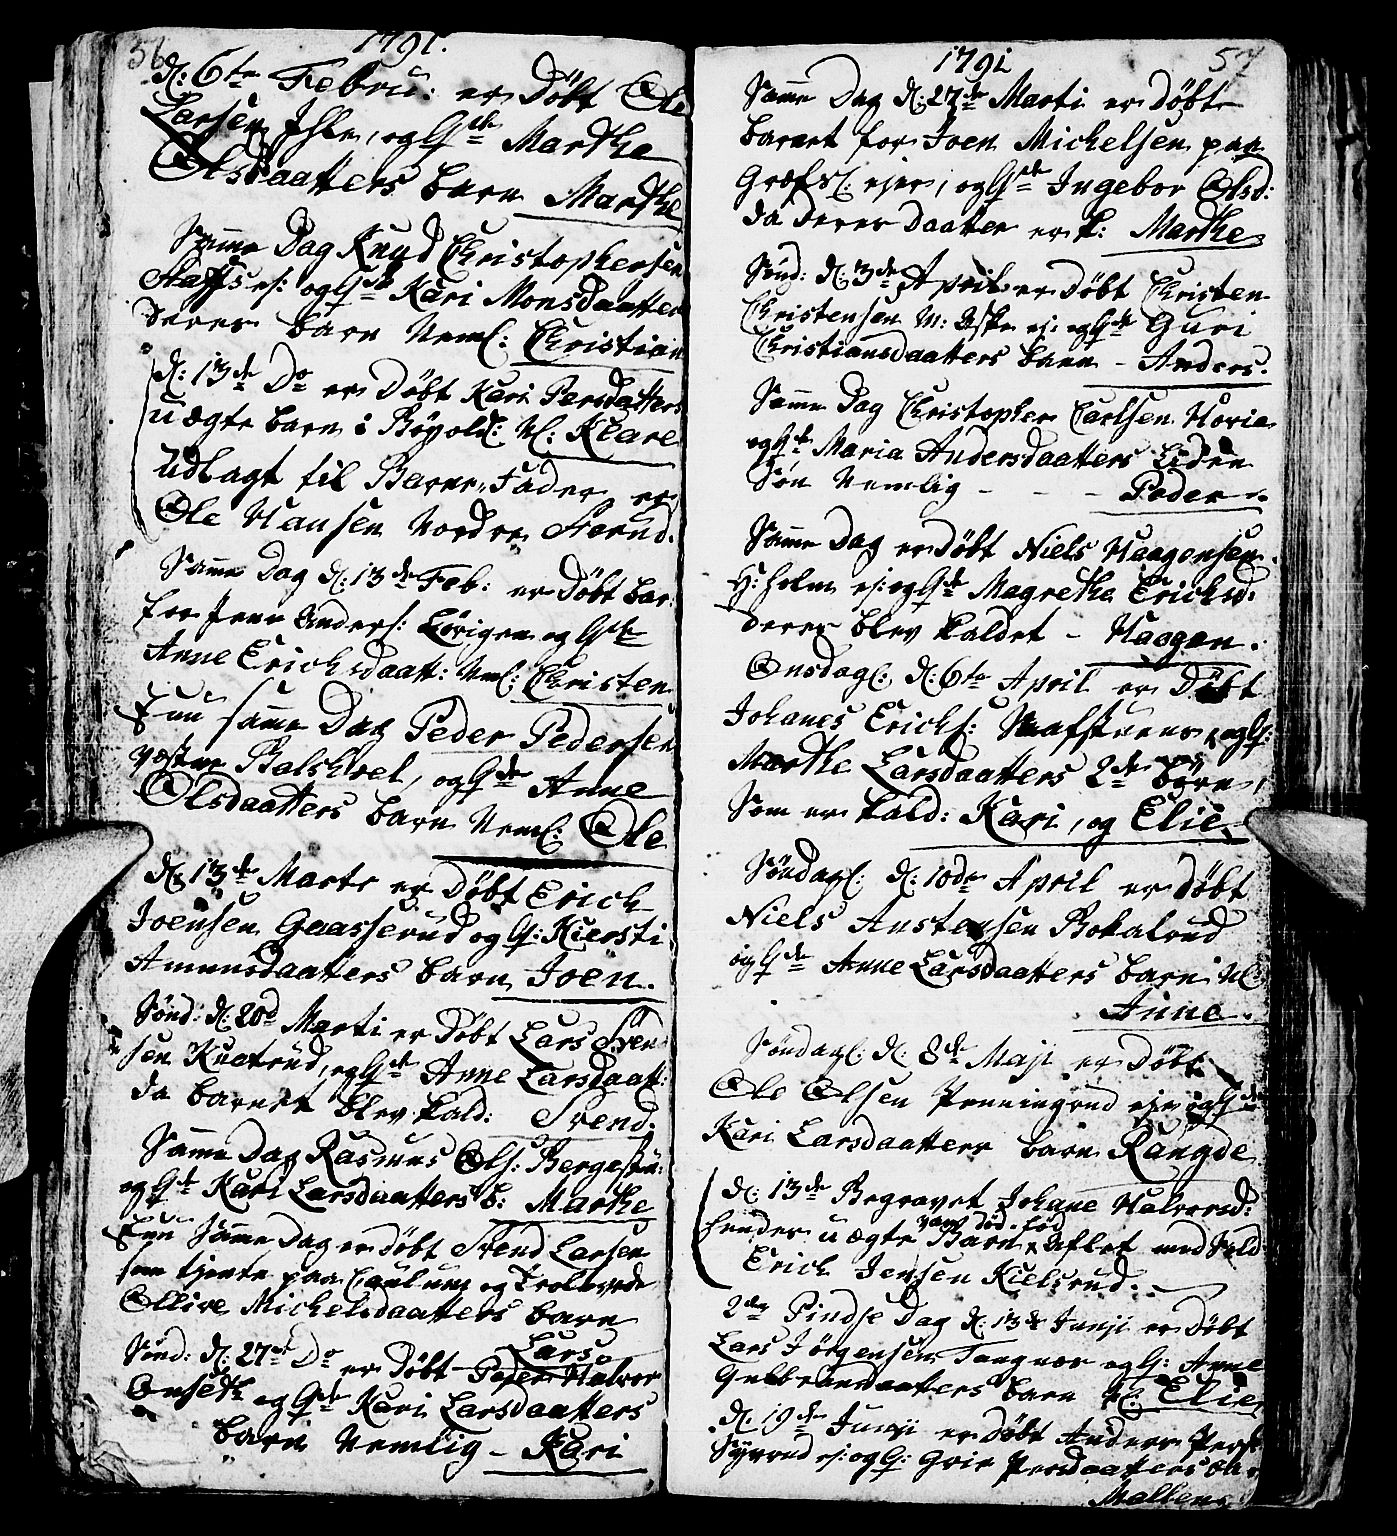 56
1791.
d: 6te Febru: er Døbt Ole
Larsen Ihle, og Hst Marthe
Olsdaatters barn Marthe
Samme Dag Knud Christophersen
og Hst Kari Monsdaatter
deres barn Neml: Christian
d: 13de Do er Døbt Kari Persdatters
uægte barn i N: Klare
Udlagt til Barne-Fader er
Ole Hansen Nordre
Samme Dag d: 13de Feb: er Døbt bar:
for Jens Anders: og Hst
Anne Erichsdaatt: Neml: Christen
Enu samme Dag Peder Pedersen
væstre Balshoel, og Hst Anne
Olsdaatters barn Neml: Ole
d: 13de Marti er Døbt Erich
Joensen Gaasserud og H: Kiersti
Amunsdaatters barn Joen.
Sønd: d: 20d Marti er Døbt Lars Svend
sen og Hst Anne Larsdaatt:
da barnet blev kald: Svend.
Samme Dag Rasmus Ols:
og Hst Kari Larsdaatters b: Marthe
Enu Samme Dag er døbt Svend Larsen
som tjente paa og
Ollive Michelsdaatters barn
Lars
Sønd: d: 27de Do er Døbt Peder Halvor
Onseth og Hst Kari Larsdaatters
barn Nemlig - Kari
1791
57
Samme Dag d: 27de Marti er døbt
barnet for Joen Michelsen paa
ejer, og Hst Ingebor Olsd:
da deres daatter er k: Marthe
Sønd: d: 3de April er Døbt Christen
Christensen og Hst Guri
Christiansdaatters barn - Anders.
Samme Dag Christopher Carlsen
og Hst Maria Andersdaatters Liden
Søn Nemlig - - - Peder
Samme Dag er Døbt Niels Haagensen
ej: og Hst Magrethe Erichsd:
deres blev kaldet - Haagen.
Onsdag: d: 6te April er Døbt
Johanes Erichs: og H:
Marthe Larsdaatters 2de børn,
Som er kald: Kari, og Elie
Søndag: d: 10de April er døbt
Niels Austensen
og Hst Anne Larsdaatters barn N:
Anne.
Søndag: d: 8de Maji er Døbt
Ole Olsen Penningrud ejer og Hst
Kari Larsdaatters barn Rangde
d: 13de Begravet Johane Halvorsd:
hendes uægte Barn, Aflet med Sold:
var død fød
Erich Jensen Kielsrud.
2den Pindse Dag d: 13de Junji er Døbt
Lars Jørgensen Tangnæs og H: Anne
Gulbrandaatters barn N: Elie
d: 19de Junji er Døbt Anders Pers:
ej: og H: Persdaatters bar